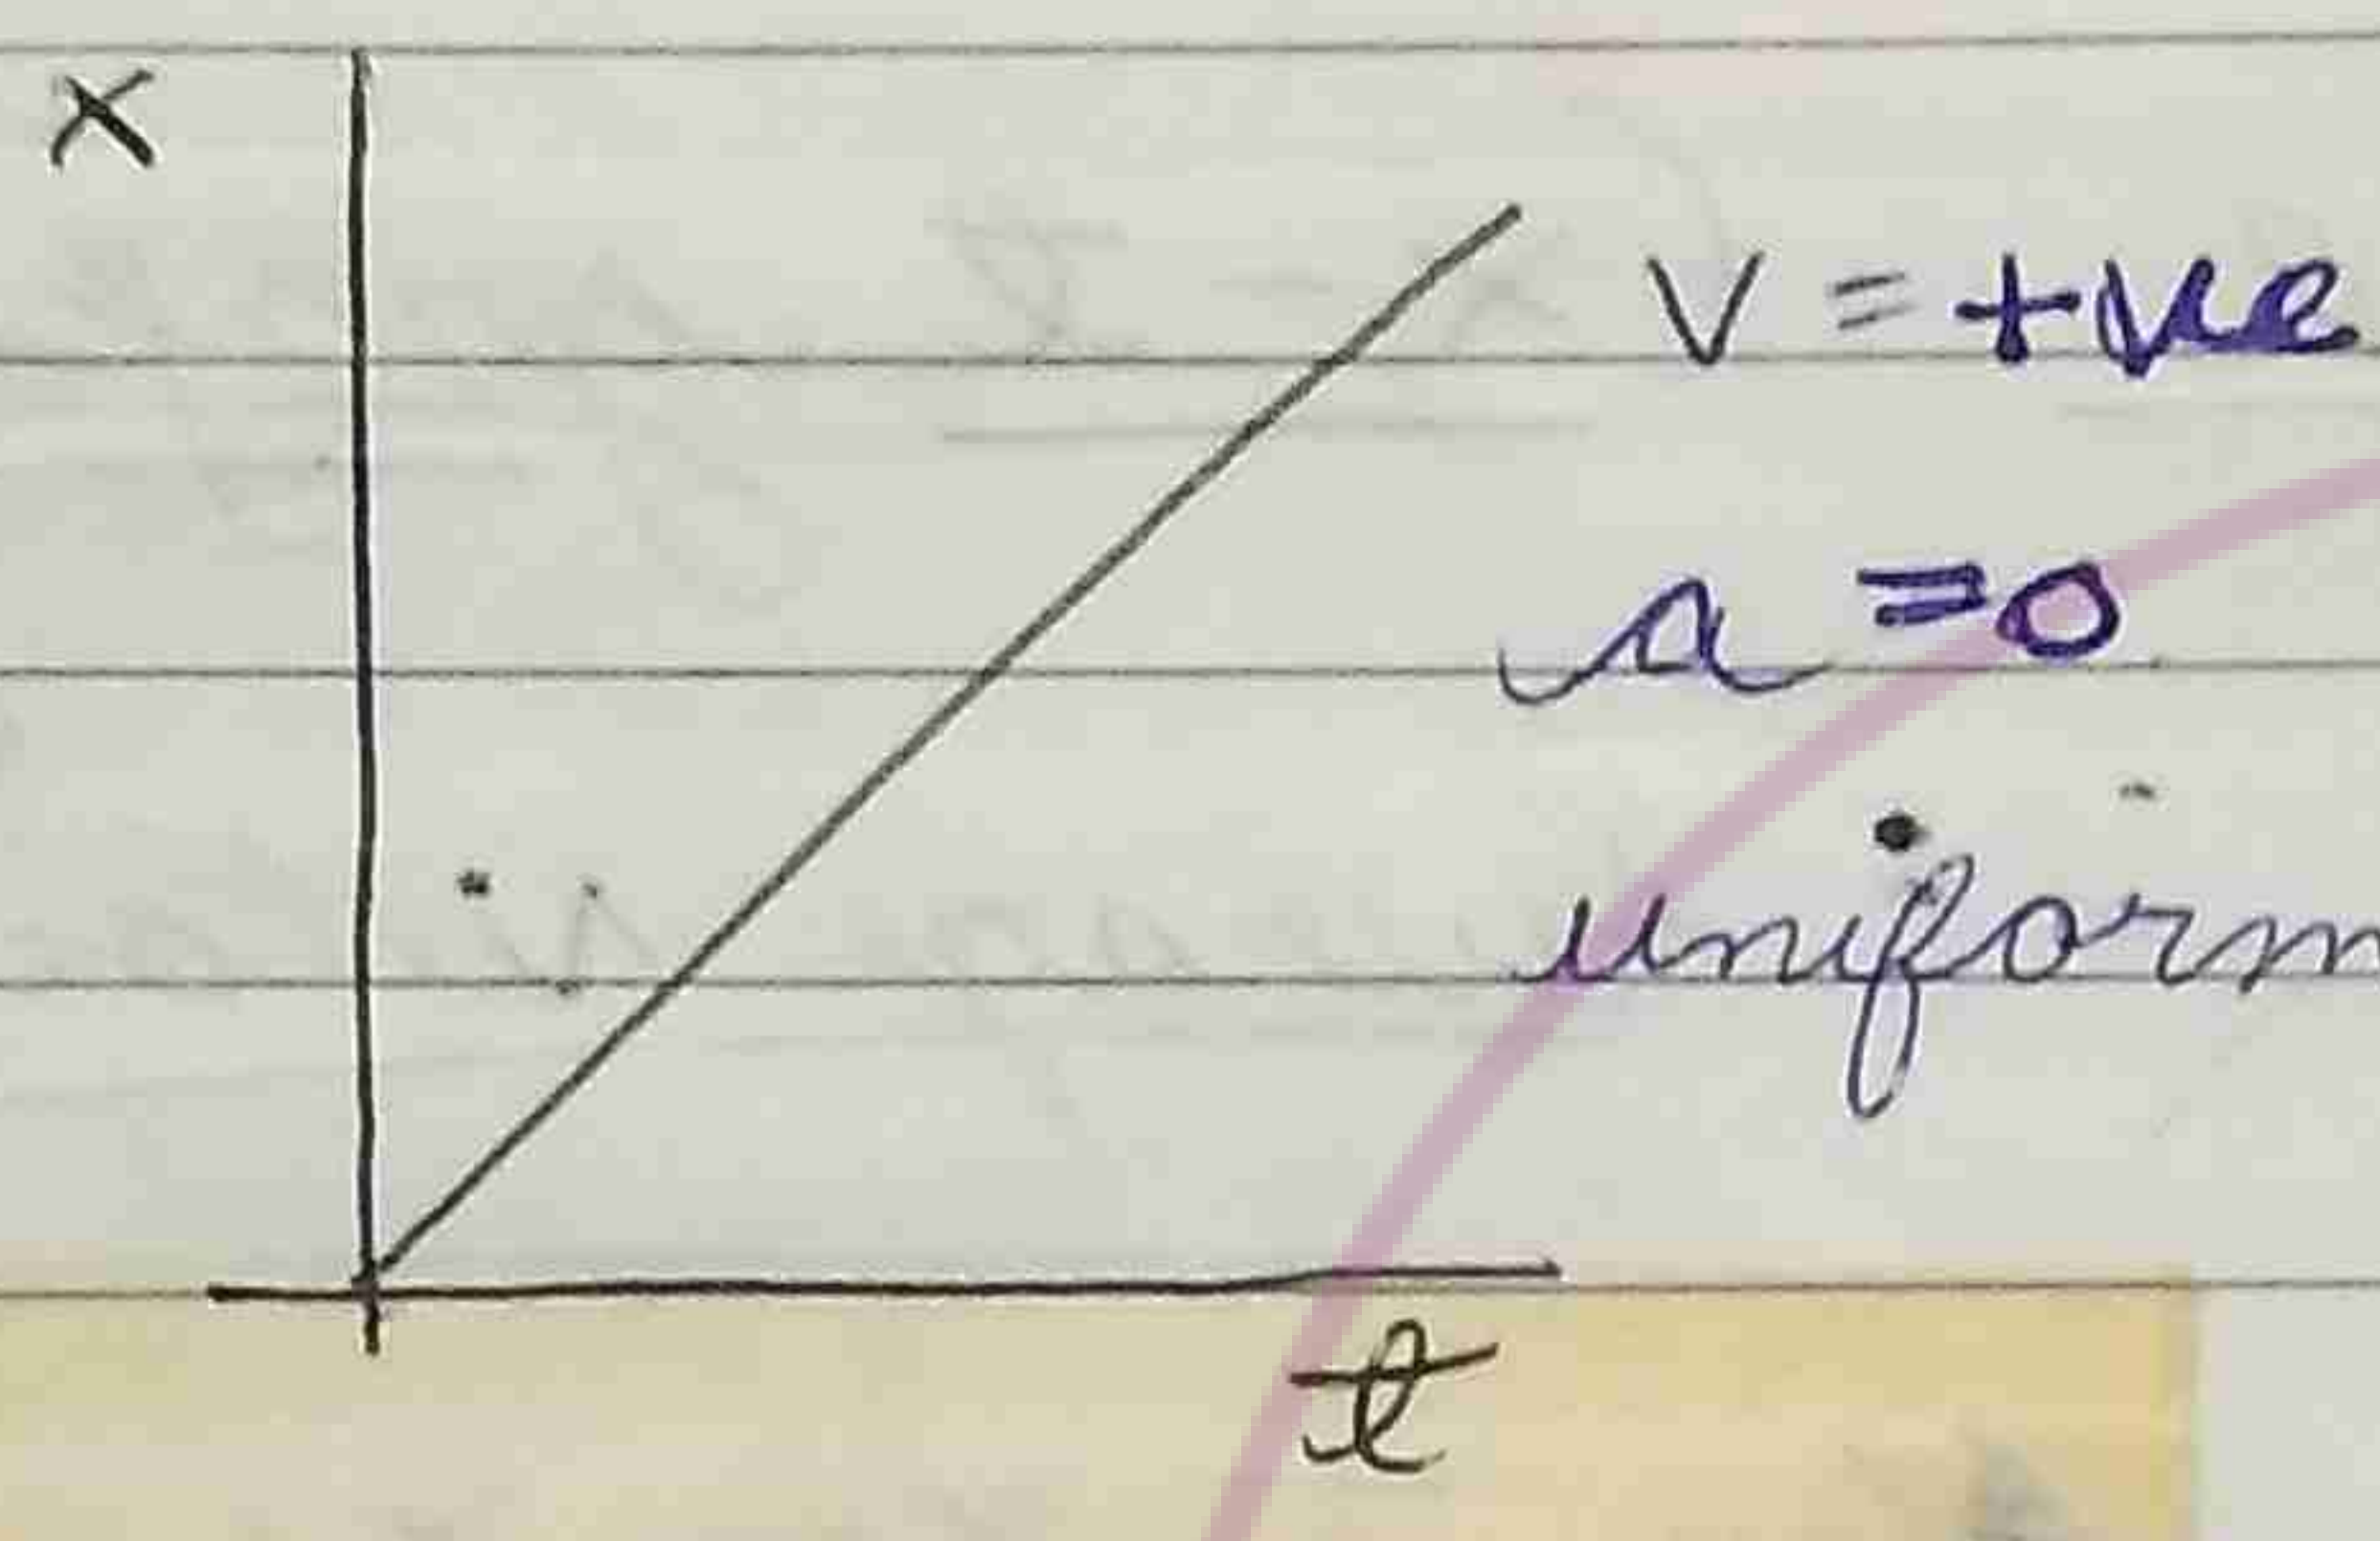 x
v = +ve
a = 0
uniform
t